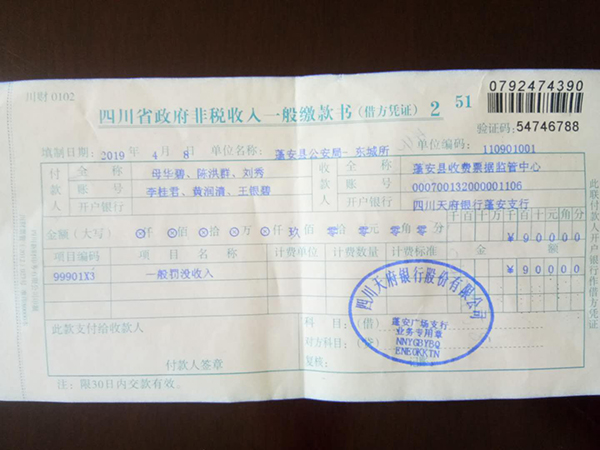 川财 0102
0792474390
四川省政府非税收入一般缴款书 (借方凭证) 2 51
验证码: 54746788
填制日期: 2019 年 4 月 8 日 单位名称: 蓬安县公安局- 东城所 单位编码: 110901001
付款人 全称 母华碧、陈洪群、刘秀 收款人 全称 蓬安县收费票据监管中心
账号 李桂君、黄润清、王银碧 账号 000700132000001106
开户银行 开户银行 四川天府银行蓬安支行
千百十万千百十元角分
金额 (大写) ⊗仟 ⊗佰 ⊗拾 ⊗万 ⊗仟 玖佰 零拾 零元 零角 零分 ¥90000
项目编码 项目名称 计费单位 计费数量 计费标准 金额
99901X3 一般罚没收入 ¥90000
四川天府银行股份有限公司
蓬安广场支行
业务专用章
NNYGBYBQ
ENEGKKTN
此款支付给收款人
科目: (借)
对方科目: (贷)
付款人签章
复核:
注: 限30日内交款有效。
此联付款人开户银行作借方凭证